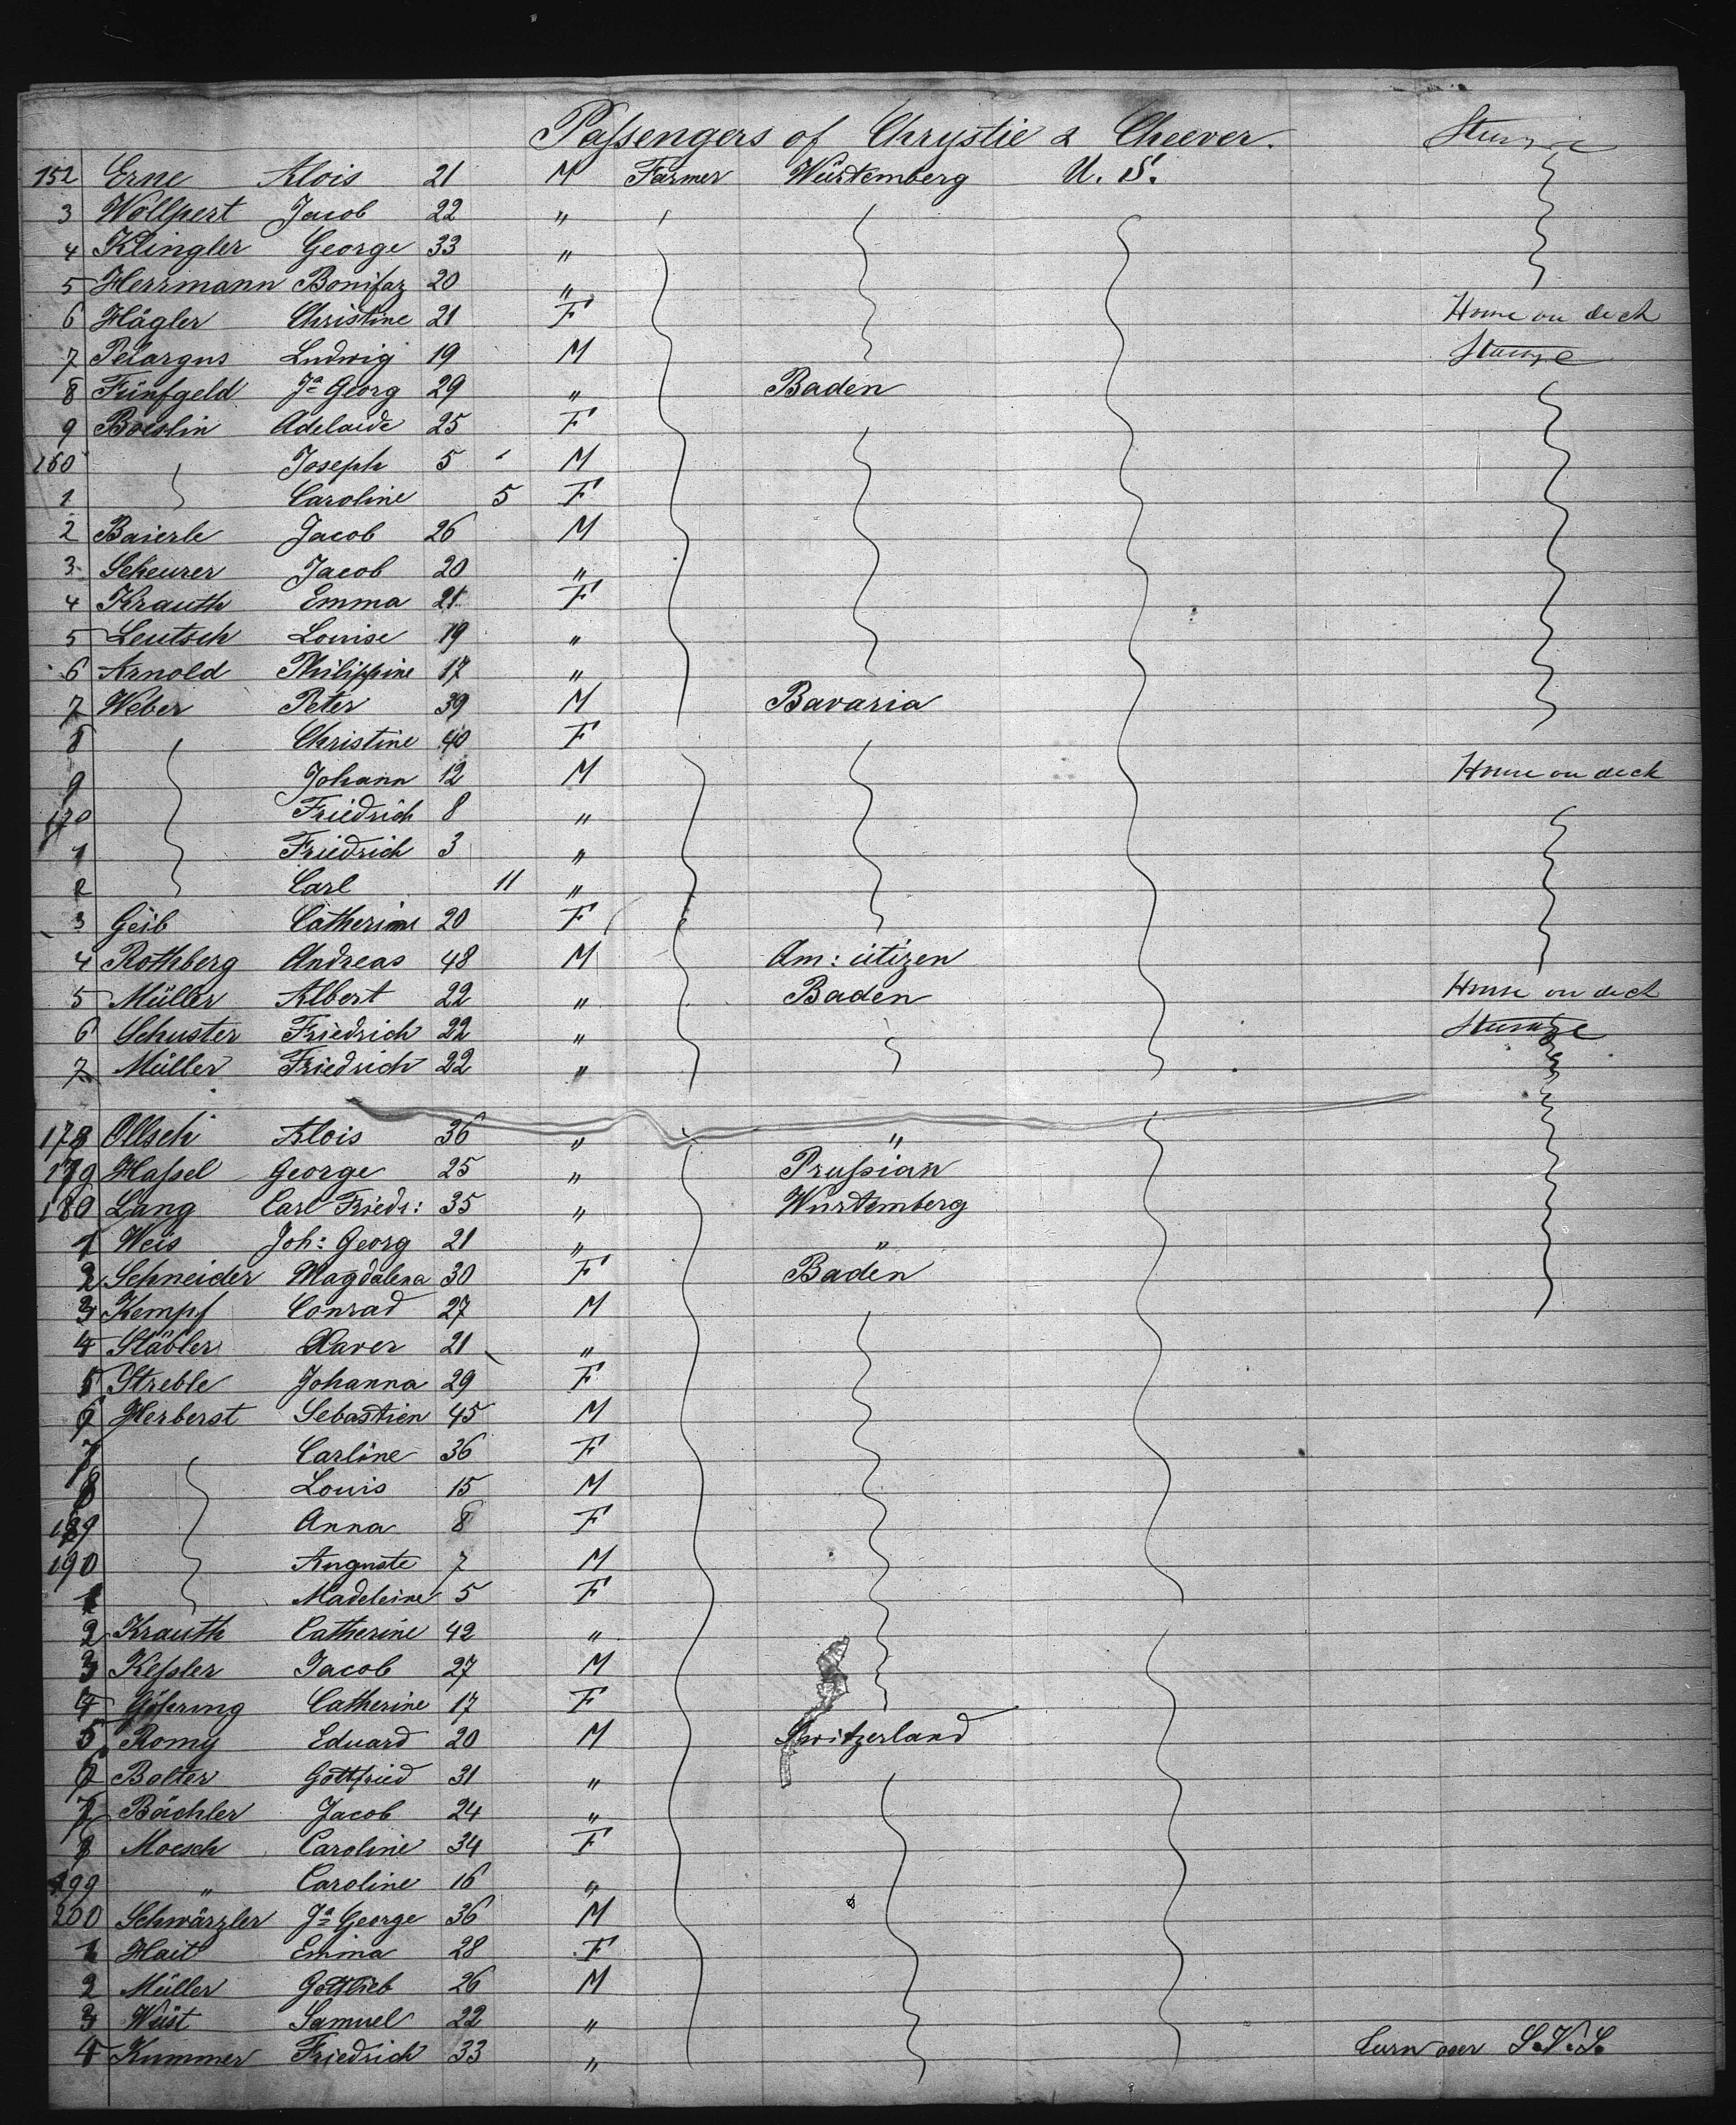 Passengers of Chrystie & Cheever.
152 Erne Alois 21 M Farmer Würtemberg U. S.
3 Wollpert Jacob 22 "
4 Klingler George 33 "
5 Herrmann Bonifaz 20 "
6 Hägler Christine 21 F House on deck
7 Pelargus Ludwig 19 M
8 Fünfgeld Ja Georg 29 " Baden
9 Boislin Adelaide 25 F
160 Joseph 5 M
1 Caroline 5 F
2 Baierle Jacob 26 M
3 Scheurer Jacob 20 "
4 Krauth Emma 21 F
5 Leutsch Louise 19 "
6 Arnold Philippine 17 "
7 Weber Peter 39 M Bavaria
8 Christine 40 F
9 Johann 12 M House on deck
170 Friedrich 8 "
1 Friedrich 3 "
2 Carl 11 "
3 Geib Catherine 20 F
4 Rothberg Andreas 48 M Am: citizen
5 Müller Albert 22 " Baden House on deck
6 Schuster Friedrich 22 "
7 Müller Friedrich 22 "
178 Ollsch Alois 36 " "
179 Haſsel George 25 " Pruſsian
180 Lang Carl Friedr: 35 " Würtemberg
1 Weis Joh: Georg 21 " "
2 Schneider Magdalena 30 F Baden
3 Kempf Conrad 27 M
4 Stäbler Xaver 21 "
5 Streble Johanna 29 F
6 Herberst Sebastien 45 M
7 Carline 36 F
8 Louis 15 M
189 Anna 8 F
190 Auguste 7 M
1 Madeleine 5 F
2 Krauth Catherine 42 "
3 Keſsler Jacob 27 M
4 Catherine 17 F
5 Romy Eduard 20 M Switzerland
6 Bolter Gottfried 31 "
7 Bächler Jacob 24 "
8 Moesch Caroline 34 F
199 " Caroline 16 "
200 Schwärzler Ja George 36 M
1 Hait Emma 28 F
2 Müller Gottlieb 26 M
3 Wüst Samuel 22 "
4 Kummer Friedrich 33 " turn over S.V.S.